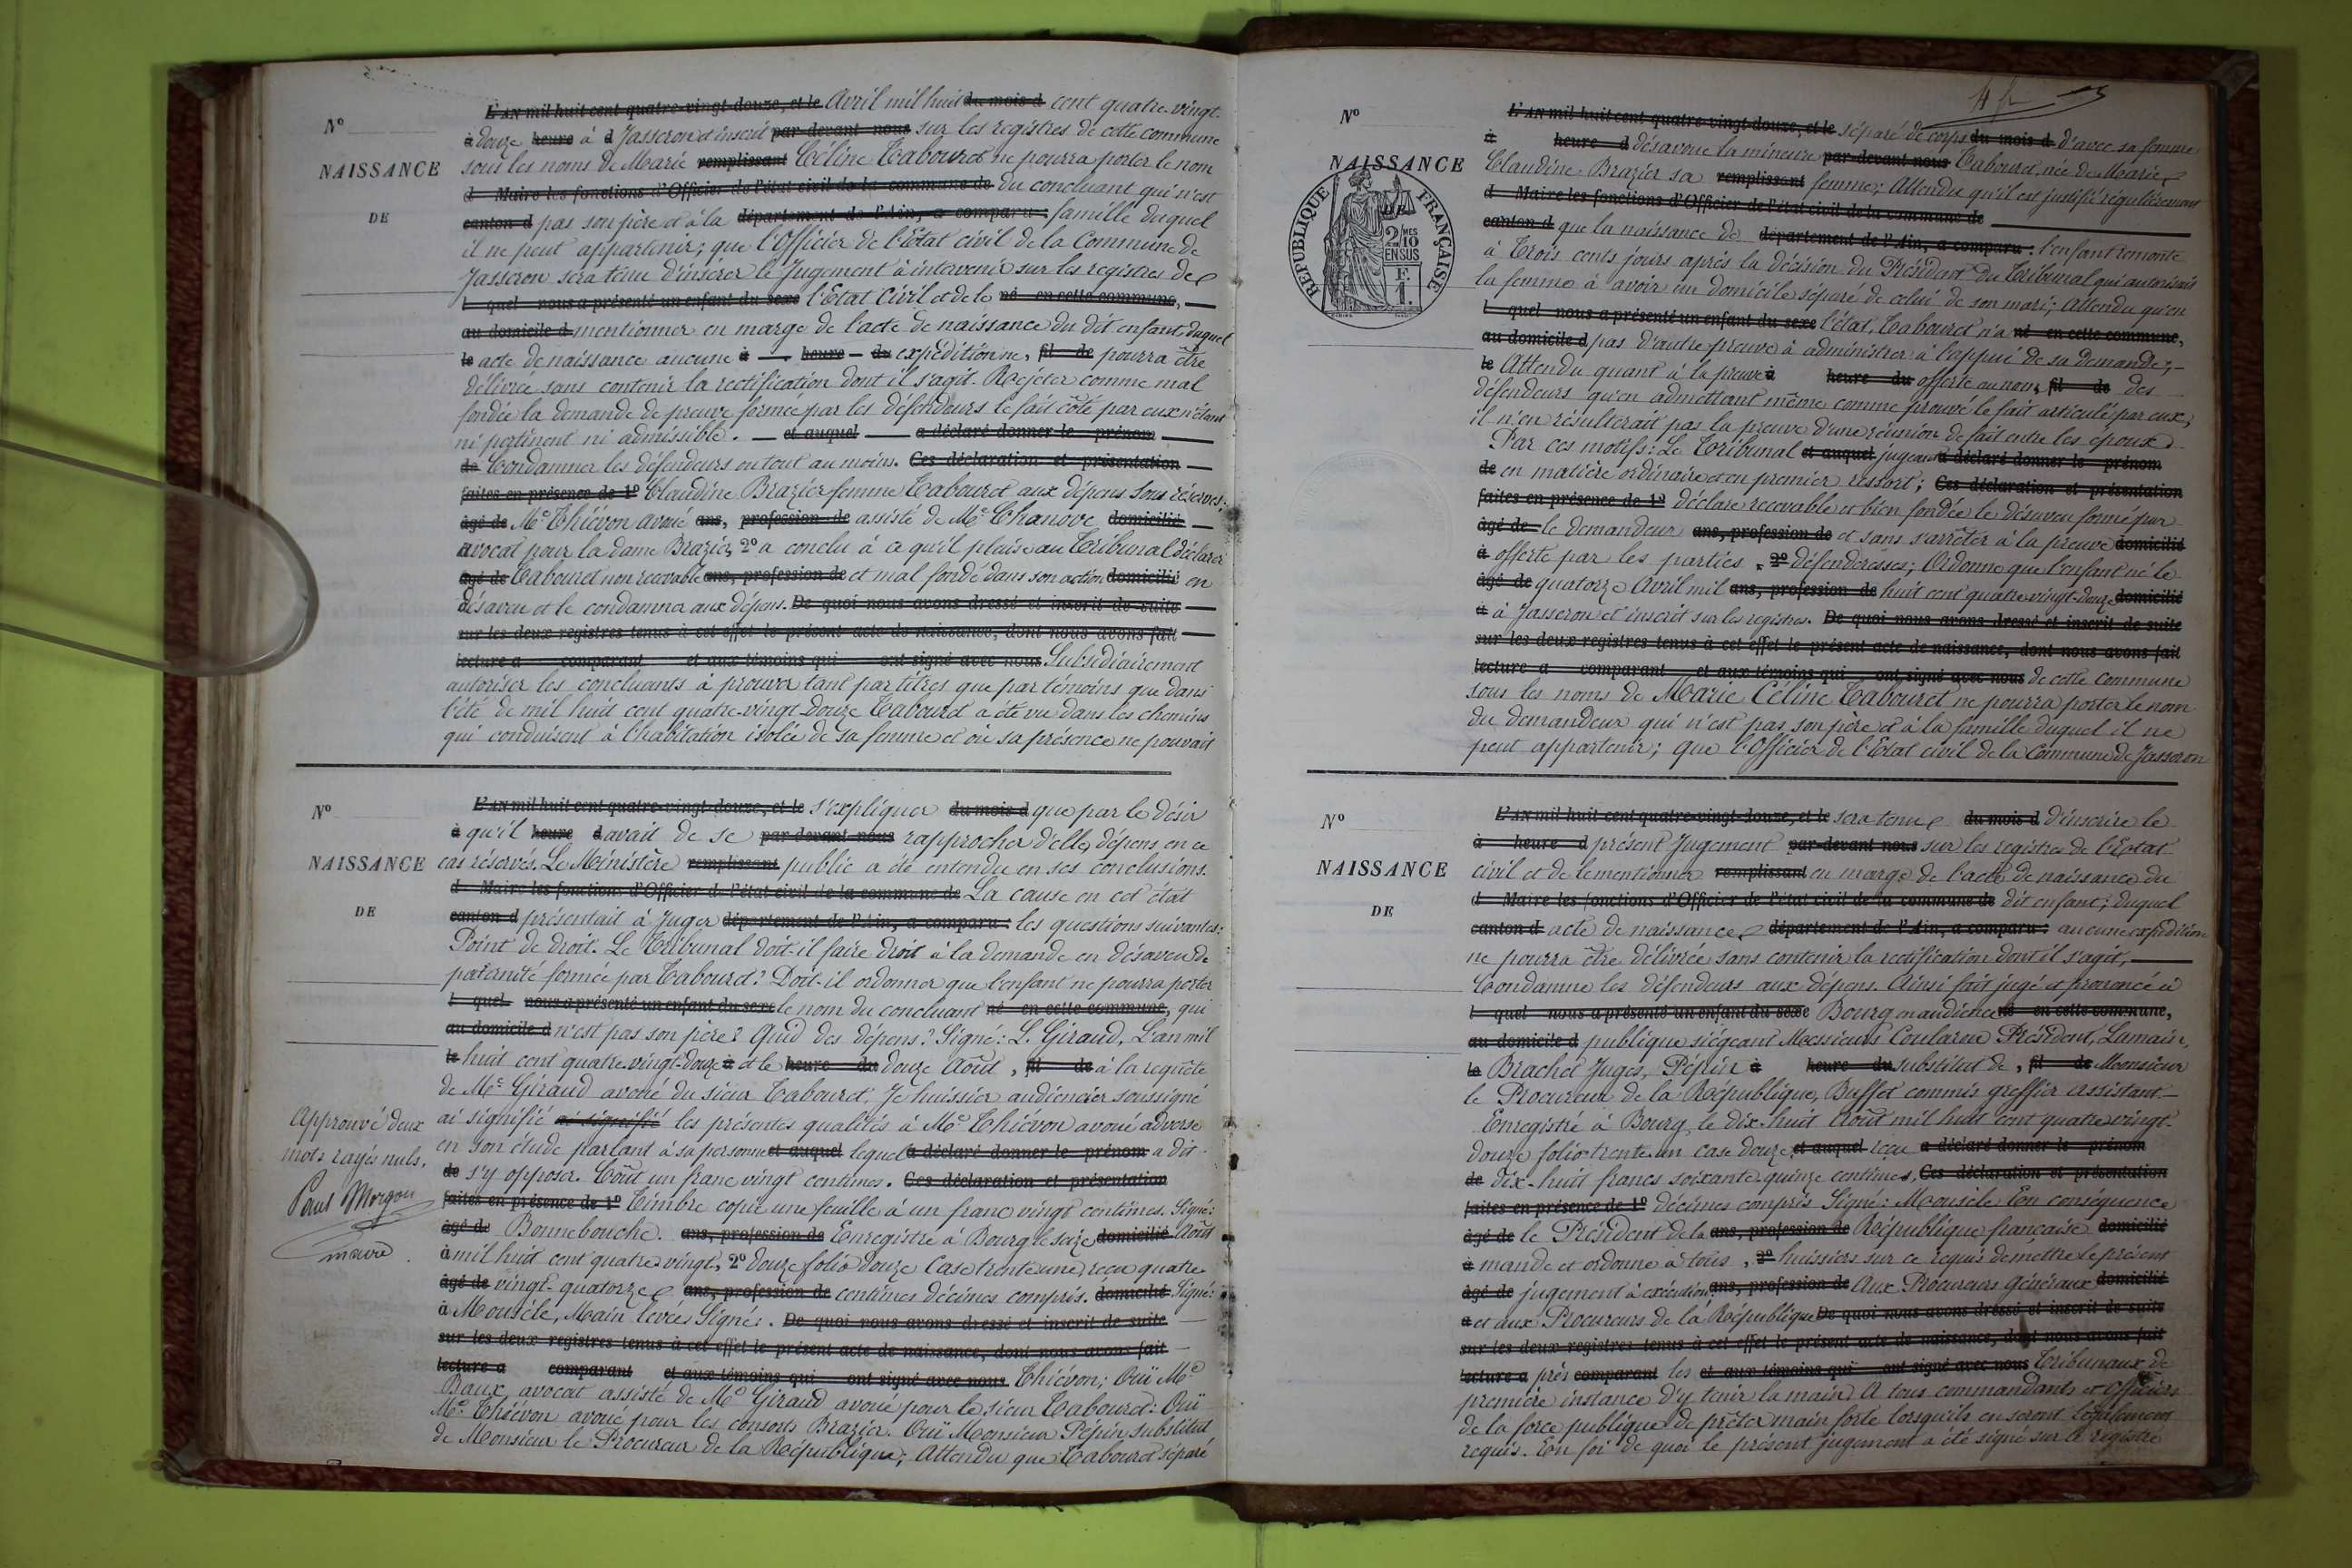 L'AN mil huit cent quatre-vingt-douze, et le Avril mil huit du mois d cent quatre-vingt-
Nº
à douze heure à d Jasseron et inscrit par-devant nous sur les registres de cette commune
NAISSANCE
sous les noms de Marie remplissant Céline Tabouret ne pourra porter le nom
d Maire les fonctions d'Officier de l'état civil de la commune de du concluant qui n'est
DE
canton d pas son père et à la département de l'Ain, a comparu : famille duquel
il ne peut appartenir; que l'Officier de l'Etat civil de la Commune de
Jasseron sera tenu d'insérer le Jugement à intervenir sur les registres de
l quel nous a présenté un enfant du sexe l'Etat Civil et de le né en cette commune,
au domicile d mentionner en marge de l'acte de naissance du dit enfant, duquel
le acte de naissance aucune à heure du expédition ne, fil de pourra être
délivrée sans contenir la rectification dont il s'agit. Rejeter comme mal
fondée la demande de preuve formée par les défendeurs le fait côté par eux n'étant
ni pertinent ni admissible. et auquel a déclaré donner le prénom
de Condamner les défendeurs ou tout au moins. Ces déclaration et présentation
faites en présence de 1º Claudine Brazier femme Tabouret aux dépens sous réserves;
âgé de Me Thiévon avoué ans, profession de assisté de Me Chanove domicilié
avocat pour la dame Brazier, 2º a conclu à ce qu'il plaise au Tribunal déclarer
âgé de Tabouret non recevable ans, profession de et mal fondé dans son action domicilié en
désaveu et le condamner aux dépens. De quoi nous avons dressé et inscrit de suite
sur les deux registres tenus à cet effet le présent acte de naissance, dont nous avons fait
lecture a comparant et aux témoins qui ont signé avec nous Subsidiairement
autoriser les concluants à prouver tant par titres que par témoins que dans
l'été de mil huit cent quatre-vingt-douze Tabouret a été vu dans les chemins
qui conduisent à l'habitation isolée de sa femme et où sa présence ne pouvait
L'AN mil huit cent quatre-vingt-douze, et le s'expliquer du mois d que par le désir
Nº
à qu'il heure d avait de se par-devant nous rapprocher d'elle, dépens en ce
NAISSANCE
cas réservés. Le Ministère remplissant public a été entendu en ses conclusions.
d Maire les fonctions d'Officier de l'état civil de la commune de La cause en cet état
DE
canton d présentait à Juger département de l'Ain, a comparu : les questions suivantes:
Point de droit. Le Tribunal doit-il faire droit à la demande en désaveu de
paternité formée par Tabouret? Doit-il ordonner que l'enfant ne pourra porter
l quel nous a présenté un enfant du sexe le nom du concluant né en cette commune, qui
au domicile d n'est pas son père? Quid des dépens? Signé: L. Giraud. L'an mil
le huit cent quatre-vingt-douze à et le heure du douze Août, fil de à la requête
de Me Giraud avoué du sieur Tabouret, Je huissier audiencier soussigné
ai signifié ai signifié les présentes qualités à Me Thiévon avoué adverse
en son étude parlant à sa personne et auquel lequel a déclaré donner le prénom a dit
de s'y opposer. Coût un franc vingt centimes. Ces déclaration et présentation
faites en présence de 1º Timbre copie une feuille à un franc vingt centimes. Signé:
âgé de Bonnebouche. ans, profession de Enregistré à Bourg le seize domicilié Août
à mil huit cent quatre vingt, 2º douze folio douze Case trente une, reçu quatre-
âgé de vingt-quatorze ans, profession de centimes décimes compris. domicilié Signé:
à Monsèle, Main levée Signé:. De quoi nous avons dressé et inscrit de suite
sur les deux registres tenus à cet effet le présent acte de naissance, dont nous avons fait
lecture a comparant et aux témoins qui ont signé avec nous Thiévon; Ouï Me
Baux, avocat assisté de Me Giraud avoué pour le sieur Tabouret: Ouï
Me Thiévon avoué pour les consorts Brazier. Ouï Monsieur Pépin substitut
de Monsieur le Procureur de la République; Attendu que Tabouret séparé
Approuvé deux
mots rayés nuls.
Paul Morgon
maire
L'AN mil huit cent quatre-vingt-douze, et le séparé de corps du mois d d'avec sa femme
Nº
à heure d désavoue la mineure par-devant nous Tabouret, née de Marie
NAISSANCE
Claudine Brazier sa remplissant femme; Attendu qu'il est justifié régulièrement
d Maire les fonctions d'Officier de l'état civil de la commune de
RÉPUBLIQUE FRANÇAISE
2/10 MES
EN SUS
F.
1.
canton d que la naissance de département de l'Ain, a comparu : l'enfant remonte
à Trois cents jours après la décision du Président du Tribunal qui autorisait
la femme à avoir un domicile séparé de celui de son mari; Attendu qu'en
l quel nous a présenté un enfant du sexe l'état, Tabouret n'a né en cette commune,
au domicile d pas d'autre preuve à administrer à l'appui de sa demande;
le Attendu quant à la preuve à heure du offerte au nom, fil de des
défendeurs qu'en admettant même comme prouvé le fait articulé par eux,
il n'en résulterait pas la preuve d'une réunion de fait entre les époux
Par ces motifs: Le Tribunal et auquel jugeant a déclaré donner le prénom
de en matière ordinaire et en premier ressort; Ces déclaration et présentation
faites en présence de 1º déclare recevable et bien fondée le désaveu formé par
âgé de le demandeur ans, profession de et sans s'arrêter à la preuve domicilié
à offerte par les parties, 2º défenderesses; Ordonne que l'enfant né le
âgé de quatorze Avril mil ans, profession de huit cent quatre-vingt-douze domicilié
à à Jasseron et inscrit sur les registres. De quoi nous avons dressé et inscrit de suite
sur les deux registres tenus à cet effet le présent acte de naissance, dont nous avons fait
lecture a comparant et aux témoins qui ont signé avec nous de cette commune
sous les noms de Marie Céline Tabouret ne pourra porter le nom
du demandeur qui n'est pas son père et à la famille duquel il ne
peut appartenir; que l'Officier de l'Etat civil de la Commune de Jasseron
L'AN mil huit cent quatre-vingt-douze, et le sera tenu du mois d d'inscrire le
Nº
à heure d présent Jugement par-devant nous sur les registres de l'Etat
NAISSANCE
civil et de le mentionner remplissant en marge de l'acte de naissance du
d Maire les fonctions d'Officier de l'état civil de la commune de dit enfant; duquel
DE
canton d acte de naissance département de l'Ain, a comparu : aucune expédition
ne pourra être délivrée sans contenir la rectification dont il s'agit,
Condamne les défendeurs aux dépens. Ainsi fait jugé et prononcé à
l quel nous a présenté un enfant du sexe Bourg en audience né en cette commune,
au domicile d publique siégeant Messieurs Président,
le Brachet Juges, Pépin à heure du substitut de, fil de Monsieur
le Procureur de la République, Buffet commis greffier assistant.
Enregistré à Bourg, le dix-huit Août mil huit cent quatre vingt-
douze folio trente-un case douze, et auquel reçu a déclaré donner le prénom
de Dix-huit francs soixante-quinze centimes, Ces déclaration et présentation
faites en présence de 1º décimes compris Signé: Monsèle En conséquence
âgé de le Président de la ans, profession de République française domicilié
à mande et ordonne à tous, 2º huissiers sur ce requis de mettre le présent
âgé de jugement à exécution, ans, profession de Aux Procureurs Généraux domicilié
à et aux Procureurs de la République De quoi nous avons dressé et inscrit de suite
sur les deux registres tenus à cet effet le présent acte de naissance, dont nous avons fait
lecture a près comparant les et aux témoins qui ont signé avec nous Tribunaux de
première instance d'y tenir la main. A tous commandants et officiers
de la force publique de prêter main forte lorsqu'ils en seront légalement
requis. En foi de quoi le présent jugement a été signé sur le registre